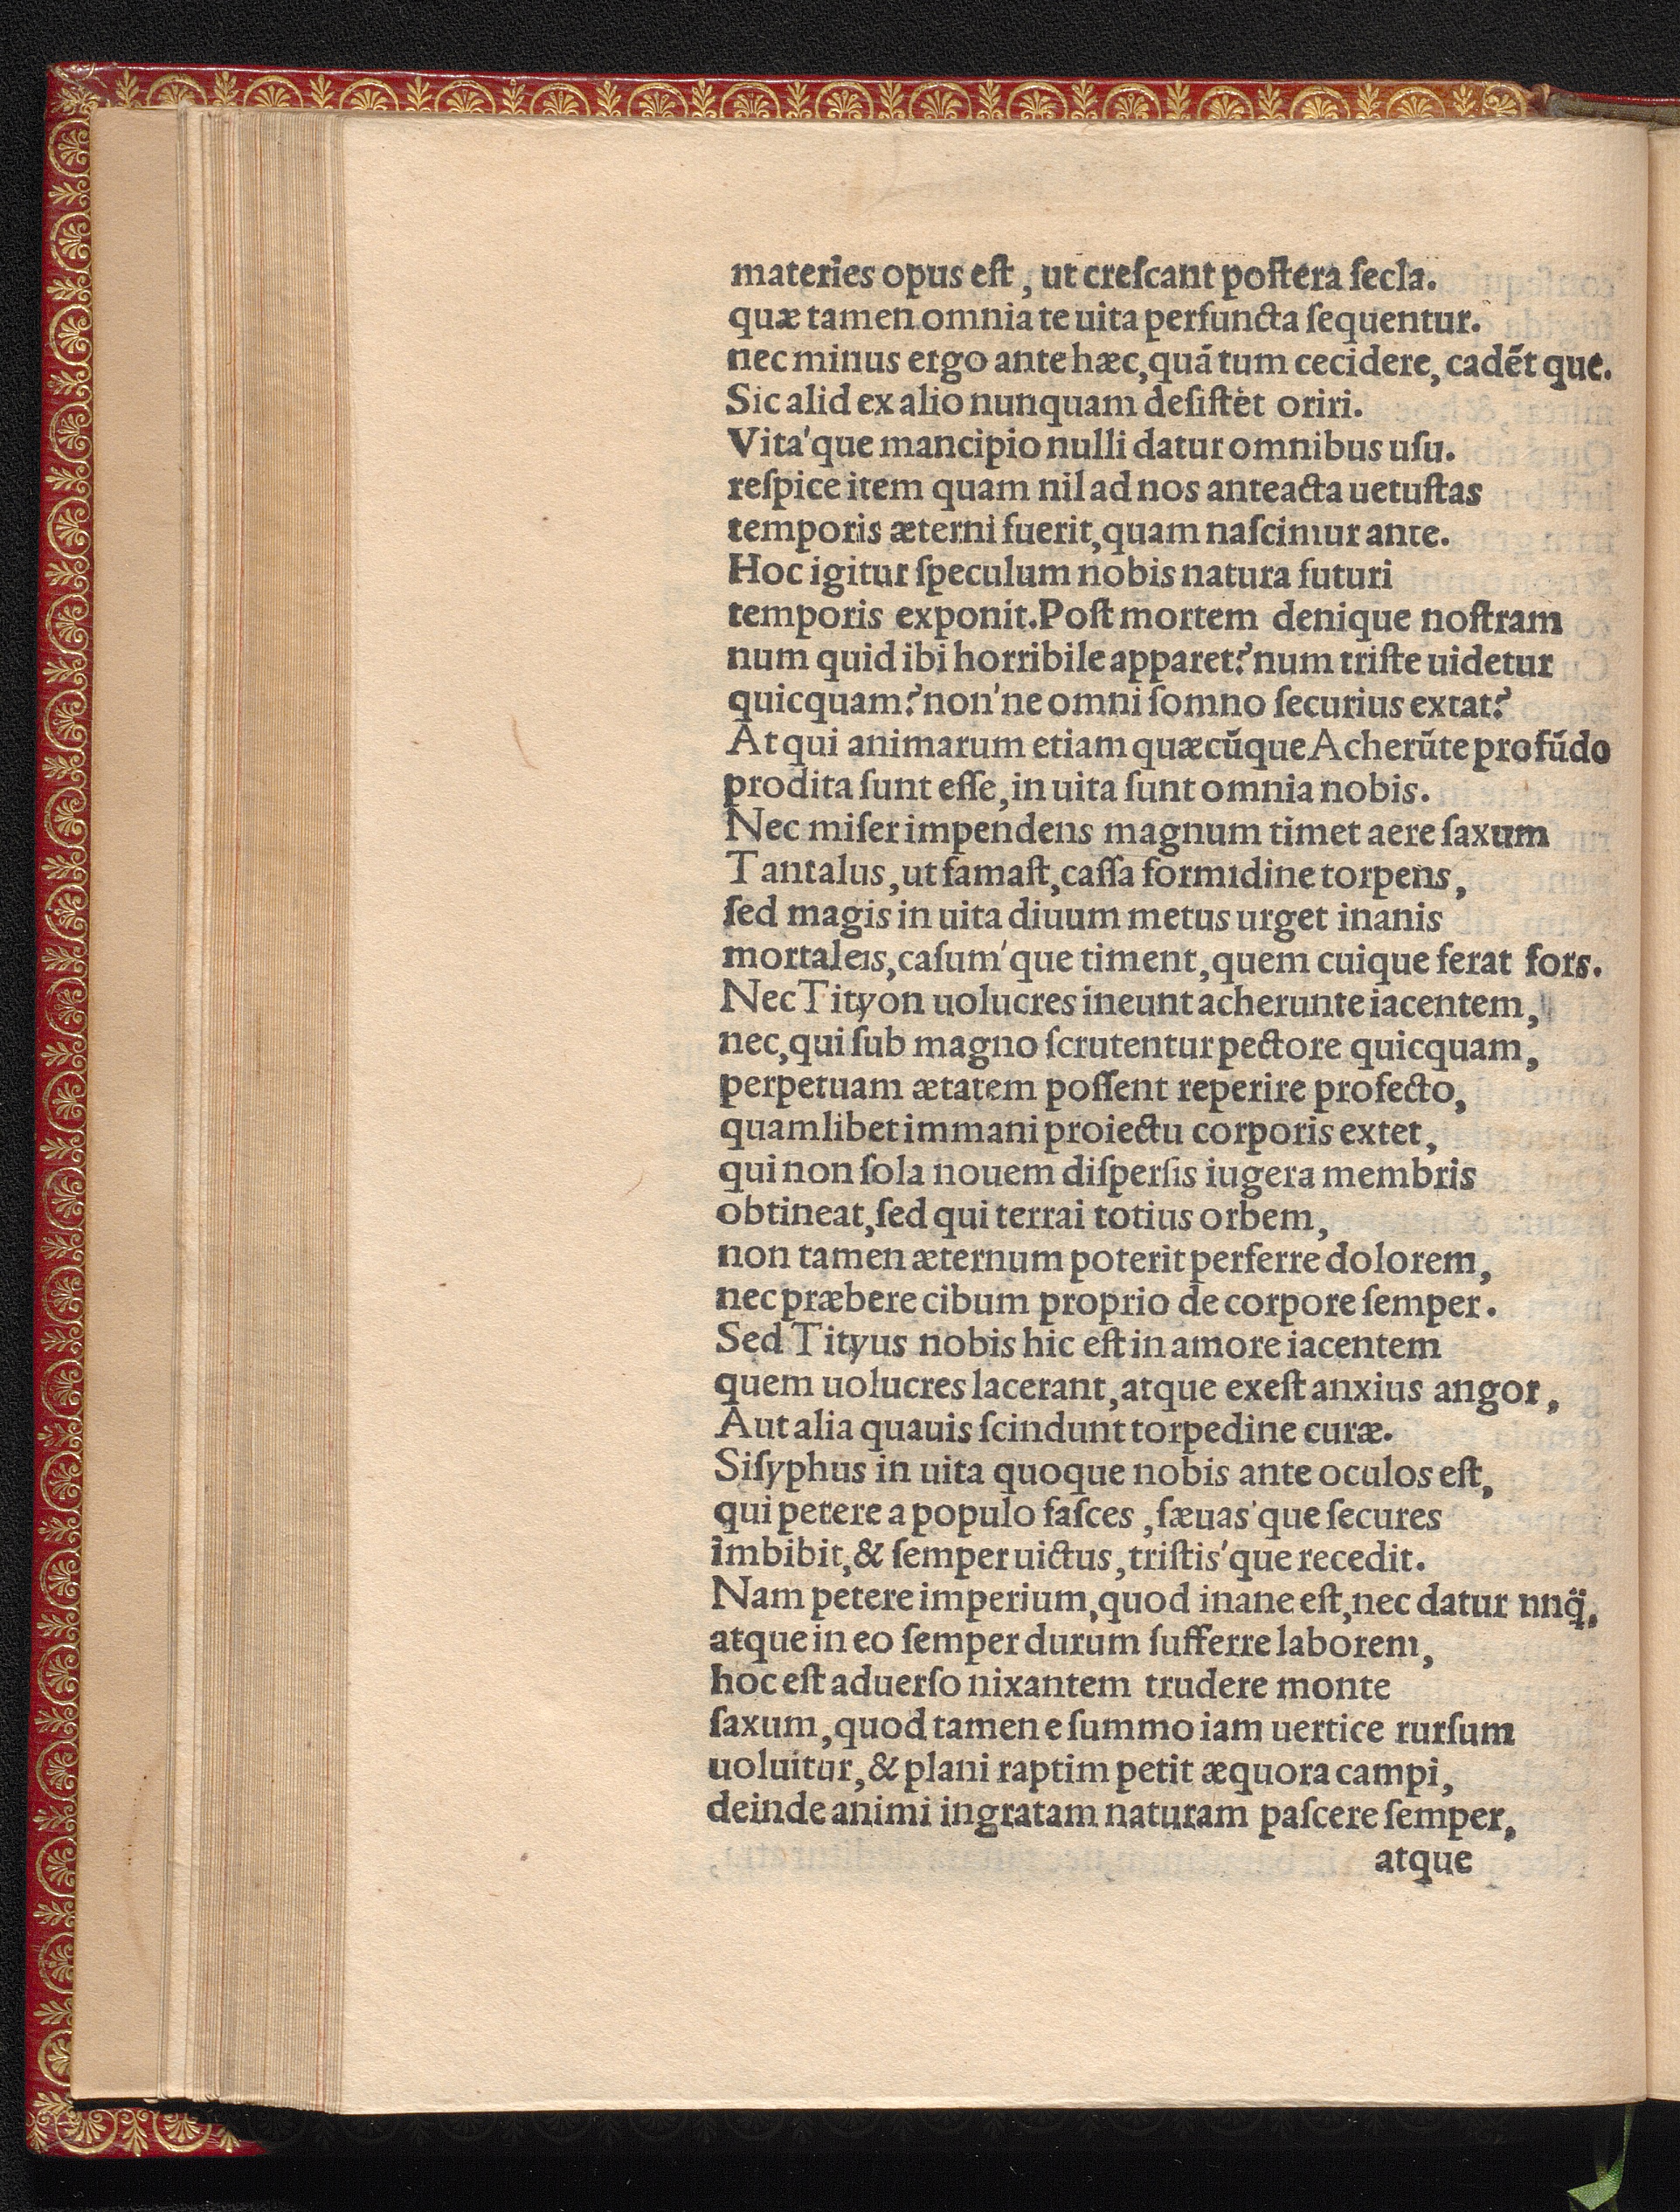 materies opus eſt, ut creſcant poſtera ſecla.
quæ tamen omnia te uita perfuncta ſequentur.
nec minus ergo ante hæc, quā tum cecidere, cadēt que.
Sic alid ex alio nunquam deſiſtet oriri.
Vita'que mancipio nulli datur omnibus uſu.
reſpice item quam nil ad nos anteacta uetuſtas
temporis æterni fuerit, quam naſcimur ante.
Hoc igitur ſpeculum nobis natura futuri
temporis exponit. Poſt mortem denique noſtram
num quid ibi horribile apparet? num triſte uidetur
quicquam? non'ne omni ſomno ſecurius extat?
At qui animarum etiam quæcūque Acherūte profūdo
prodita ſunt eſſe, in uita ſunt omnia nobis.
Nec miſer impendens magnum timet aere ſaxum
Tantalus, ut famaſt, caſſa formidine torpens,
ſed magis in uita diuum metus urget inanis
mortaleis, caſum'que timent, quem cuique ferat fors.
Nec Tityon uolucres ineunt acherunte iacentem,
nec, qui ſub magno ſcrutentur pectore quicquam,
perpetuam ætatem poſſent reperire profecto,
quamlibet immani proiectu corporis extet,
qui non ſola nouem diſperſis iugera membris
obtineat, ſed qui terrai totius orbem,
non tamen æternum poterit perferre dolorem,
nec præbere cibum proprio de corpore ſemper.
Sed Tityus nobis hic eſt in amore iacentem
quem uolucres lacerant, atque exeſt anxius angor,
Aut alia quauis ſcindunt torpedine curæ.
Siſyphus in uita quoque nobis ante oculos eſt,
qui petere a populo faſces, ſæuas'que ſecures
imbibit, & ſemper uictus, triſtis'que recedit.
Nam petere imperium, quod inane eſt, nec datur nnq̈.
atque in eo ſemper durum ſufferre laborem,
hoc eſt aduerſo nixantem trudere monte
ſaxum, quod tamen e ſummo iam uertice rurſum
uoluitur, & plani raptim petit æquora campi,
deinde animi ingratam naturam paſcere ſemper,
atque